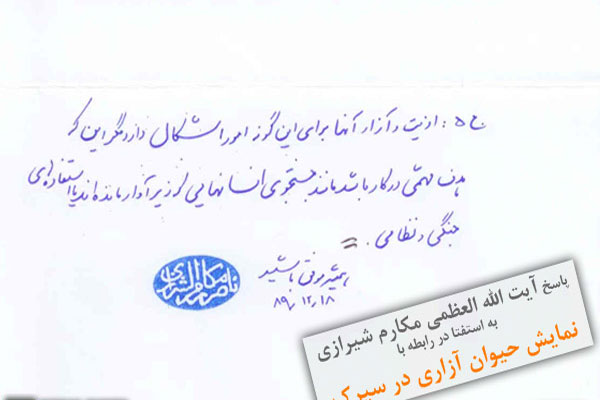 ج۵: اذیت و آزار آنها برای این گونه امور اشکال دارد مگر این که
هدف مهمی در کار باشد مانند جستجوی انسانهایی که زیر آوار مانده‌اند یا استفاده‌های
جنگی و نظامی.
همیشه موفق باشید
۸۹/۱۲/۱۸
ناصر مکارم الشیرازی
پاسخ آیت الله العظمی مکارم شیرازی
به استفتا در رابطه با
نمایش حیوان آزاری در سیرک